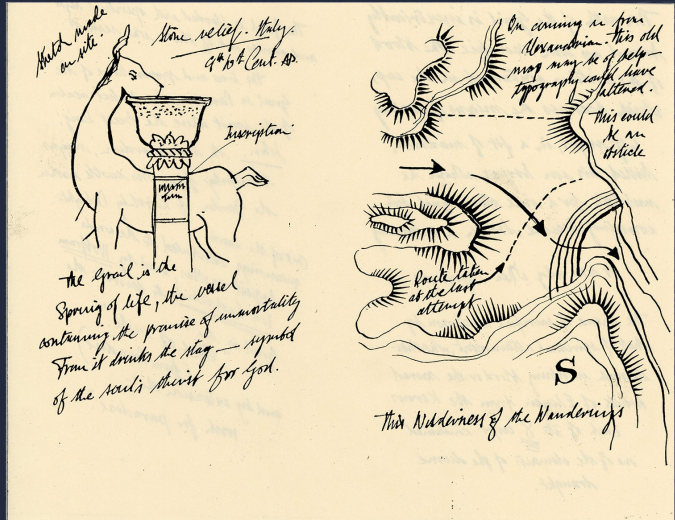 Sketch made
on site.
Stone relief. Italy.
9th
Cent. AD.
Inscription
the Grail is de
Spring of life, the vessel
containing the promise of immortality
From it drinks the stag — symbol
of the soul's thirst for God.
On coming in from
Alexandrian. This old
map may be of help
typography could have
altered.
This could
be an
Article
Route taken
at the last
attempt
S
This Wilderness of the Wanderings